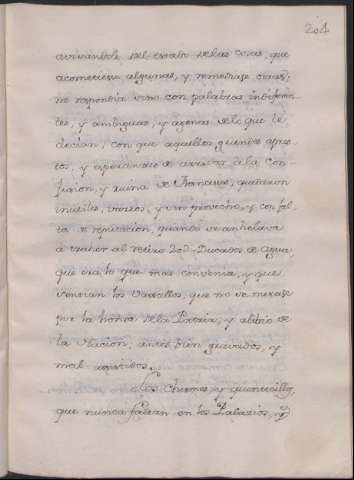 204
avisandole del estado de las cosas, que
acometiese algunas, y remediase otras;
no respondia sino con palabras indiferen-
tes, y ambiguas, y agenas de lo que le
decian, con que aquellos grandes apres-
tos, y aparatos de
fusion, y ruina de Francia, quedaron
inutiles, varios, y sin provecho, y con fal-
ta de reputacion, quando se anhelava
à traher al Retiro 20d Ducados de agua,
que era lo que mas convenia, y que
venian los Vasallos, que no se mirase
por la honra de la Patria, y alivio de
la Nacion, antes bien gravados, y
mal asistidos.
Los Chismes y quentecillos,
que nunca faltan en los Palacios,